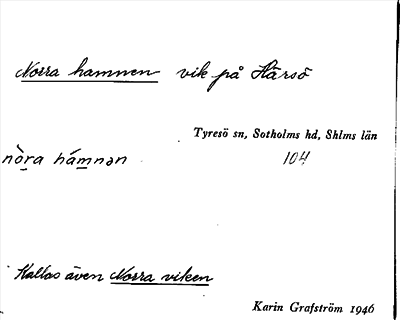 Norra hamnen vik på Härsö
Tyresö sn, Sotholms hd, Shlms län
104
nòra hámnən
Kallas även Norra viken
Karin Grafström 1946